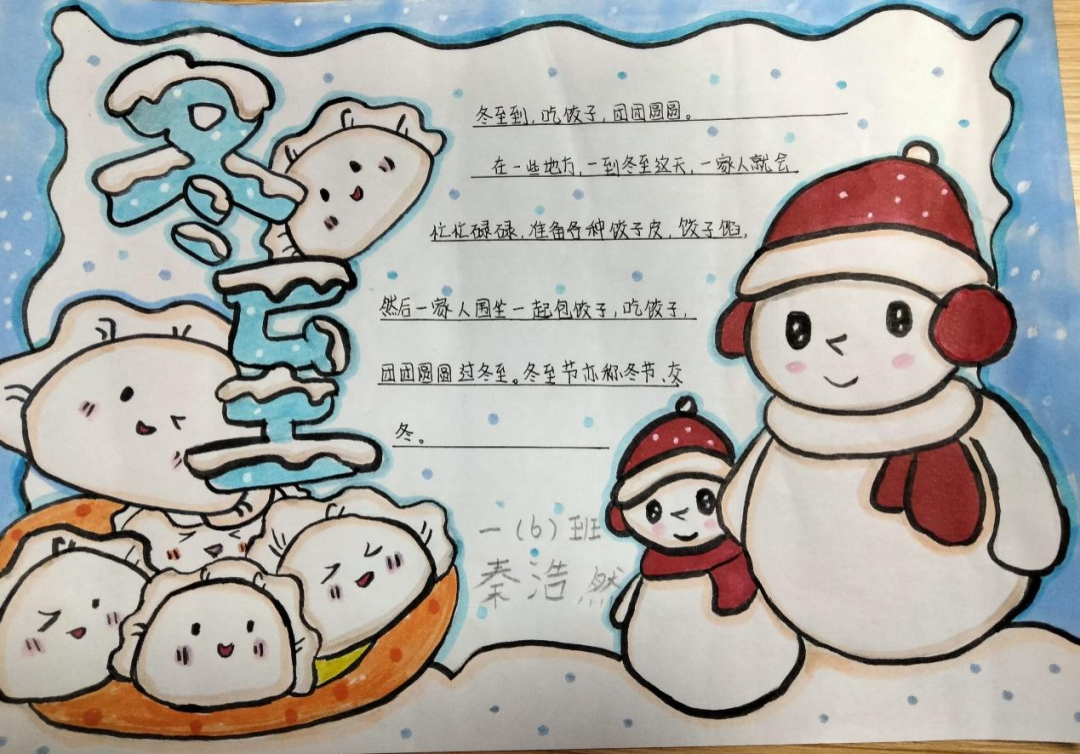 冬至
冬至到，吃饺子，团团圆圆。
在一些地方，一到冬至这天，一家人就会
忙忙碌碌，准备各种饺子皮，饺子馅，
然后一家人围坐一起包饺子，吃饺子，
团团圆圆过冬至。冬至节亦称冬节、交
冬。
一（6）班
秦浩然